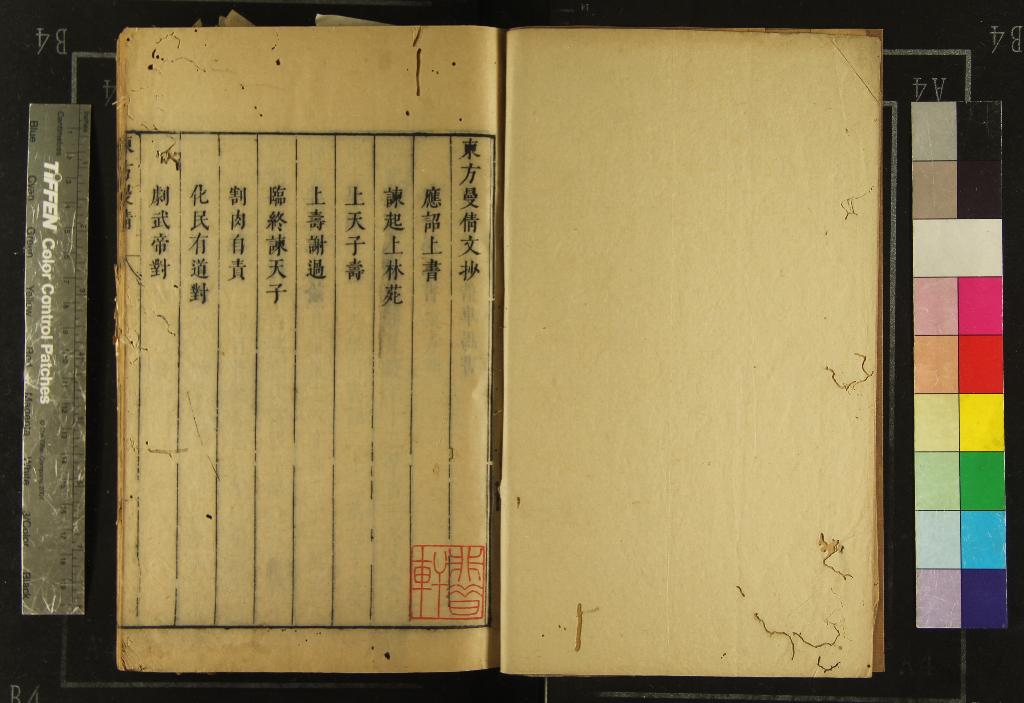 東方曼倩文抄
應詔上書
諫起上林苑
上天子壽
上壽謝過
臨終諫天子
割肉自責
化民有道對
劇武帝對
東方曼倩
軒
TIFFEN Color Control Patches
B4
B4
A4
B4